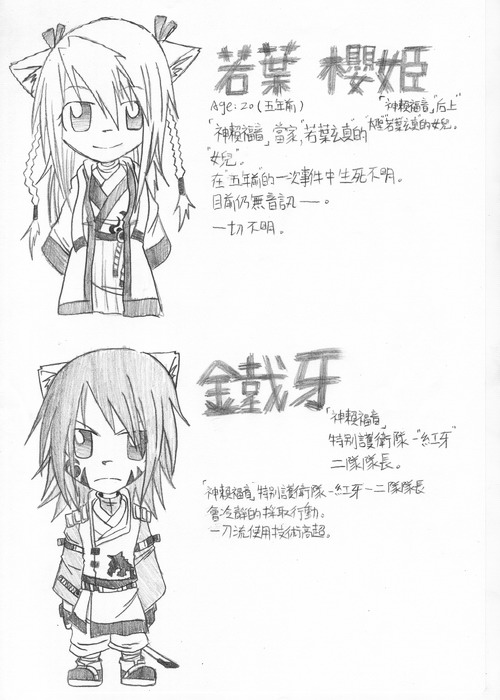 若葉 櫻姬
Age: 20 (五年前)
「神賴福音」后上
「神賴福音」當家"若葉玄真"的
"若葉玄真的女兒。
女兒。
在"五年前"的一次事件中生死不明。
目前仍無音訊——。
一切不明。
鐵牙
「神賴福音」
特別護衛隊-"紅牙"
二隊隊長。
「神賴福音」特別護衛隊-紅牙-二隊隊長
會冷靜的採取行動。
一刀流使用技術高超。